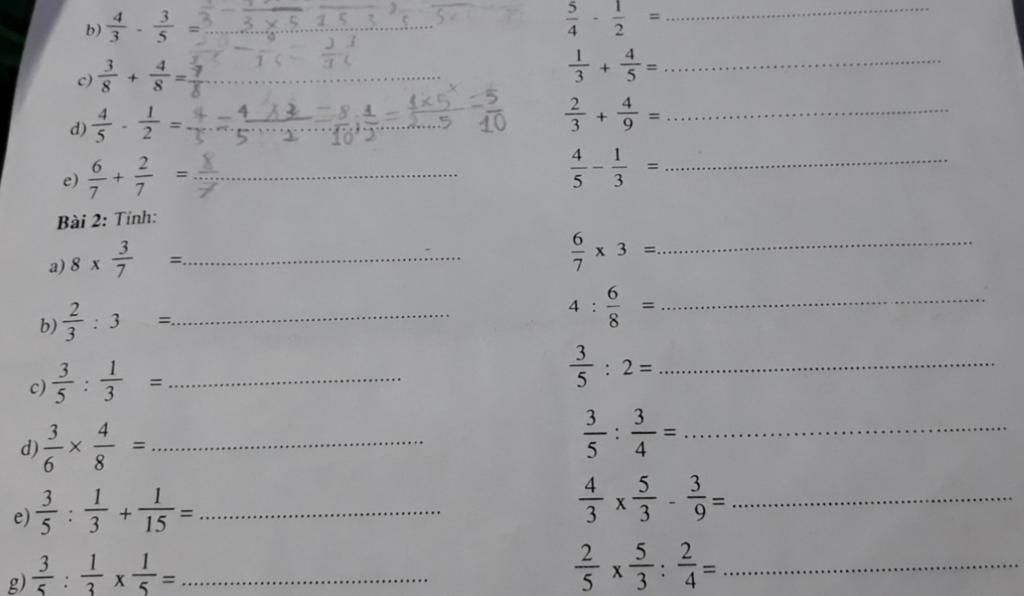 b) 4/3 - 3/5 = .......... 5/4 - 1/2 = ..........
c) 3/8 + 4/8 = 7/8 .......... 1/3 + 4/5 = ..........
d) 4/5 - 1/2 = 4/5 = 4 x 2 / 5 2 = 8/10; 1/2 = 1x5 / 2 5 = 5/10 2/3 + 4/9 = ..........
e) 6/7 + 2/7 = 8/7 .......... 4/5 - 1/3 = ..........
Bài 2: Tính:
a) 8 x 3/7 = .......... 6/7 x 3 = ..........
b) 2/3 : 3 = .......... 4 : 6/8 = ..........
c) 3/5 : 1/3 = .......... 3/5 : 2 = ..........
d) 3/6 × 4/8 = .......... 3/5 : 3/4 = ..........
e) 3/5 : 1/3 + 1/15 = .......... 4/3 x 5/3 - 3/9 = ..........
g) 3/5 : 1/3 x 1/5 = .......... 2/5 x 5/3 : 2/4 = ..........